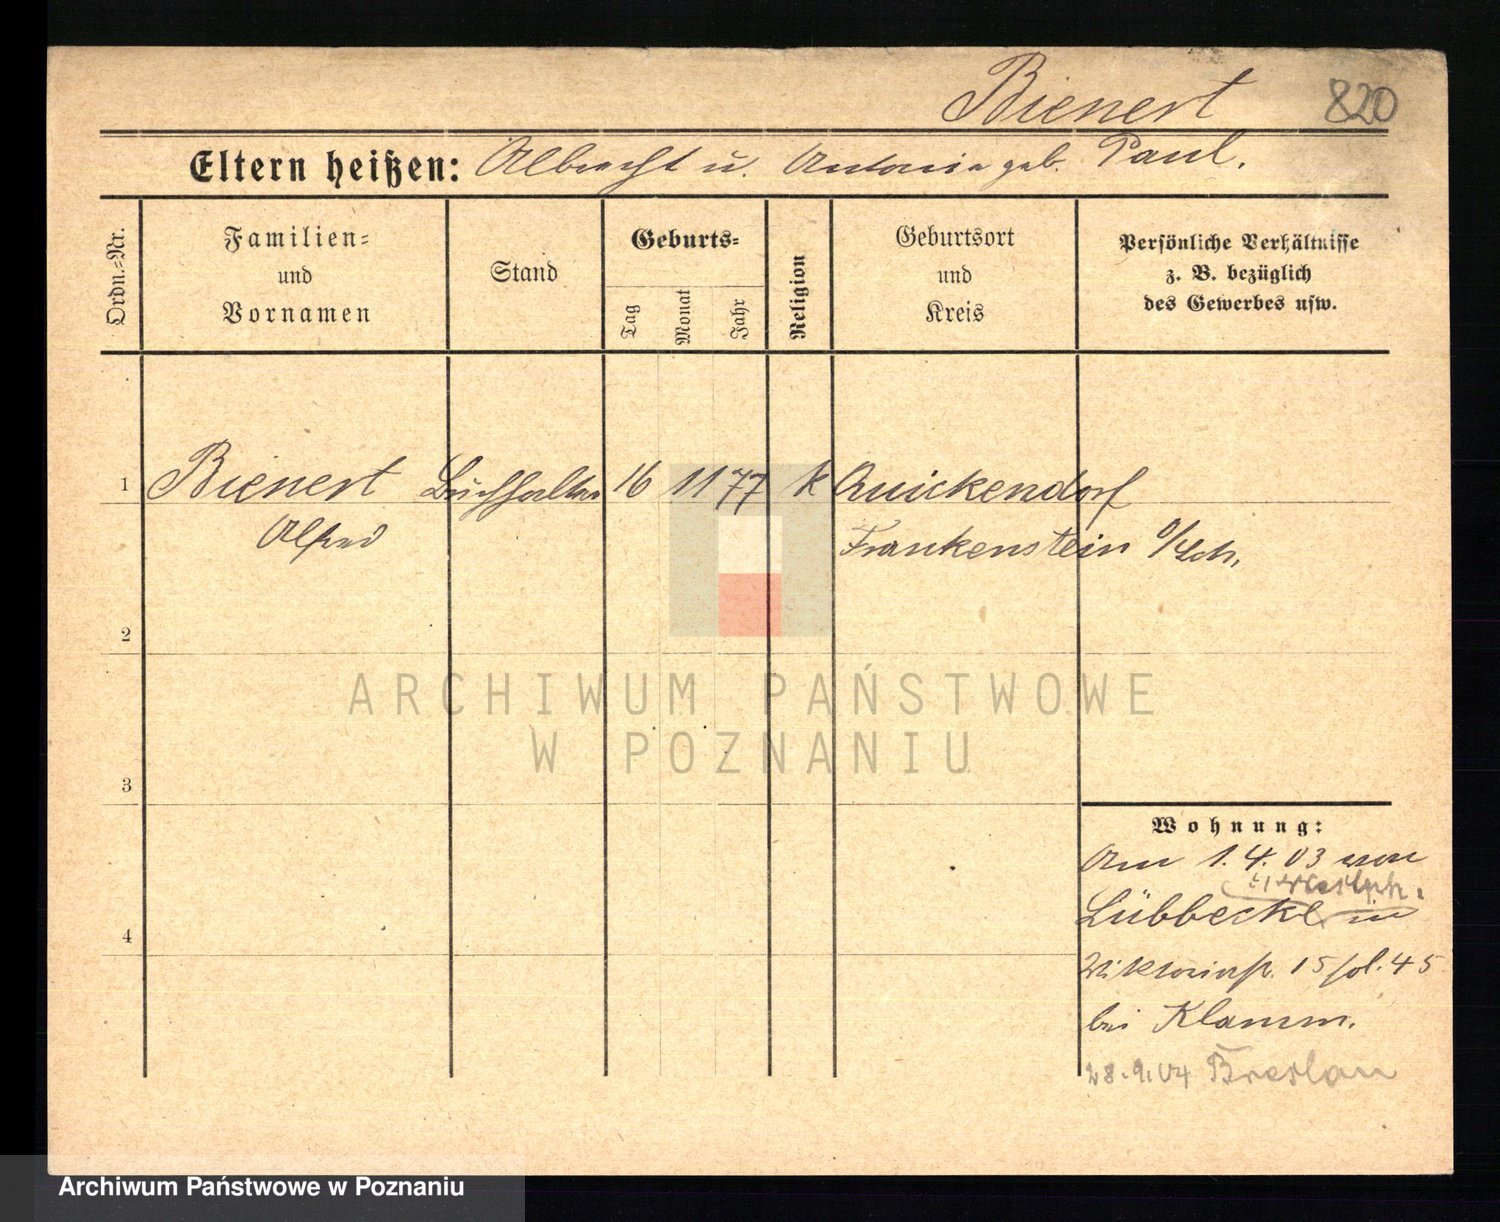 Bienert 820
Eltern heißen: Albrecht u. Antonie geb. Paul.
Ordn.-Nr.
Familien-
und
Vornamen
Stand
Geburts-
Tag
Monat
Jahr
Religion
Geburtsort
und
Kreis
Persönliche Verhältnisse
z. B. bezüglich
des Gewerbes usw.
1 Bienert Buchhalter 16 11 77 k Quickendorf
Alfred Frankenstein o/Sch.
2
3
4
Wohnung:
Am 1.4.03 von
i/Westph.
Lübbecke in
Viktoriastr. 15 fol. 45
bei Klamm.
28.9.04 Breslau
ARCHIWUM PAŃSTWOWE
W POZNANIU
Archiwum Państwowe w Poznaniu